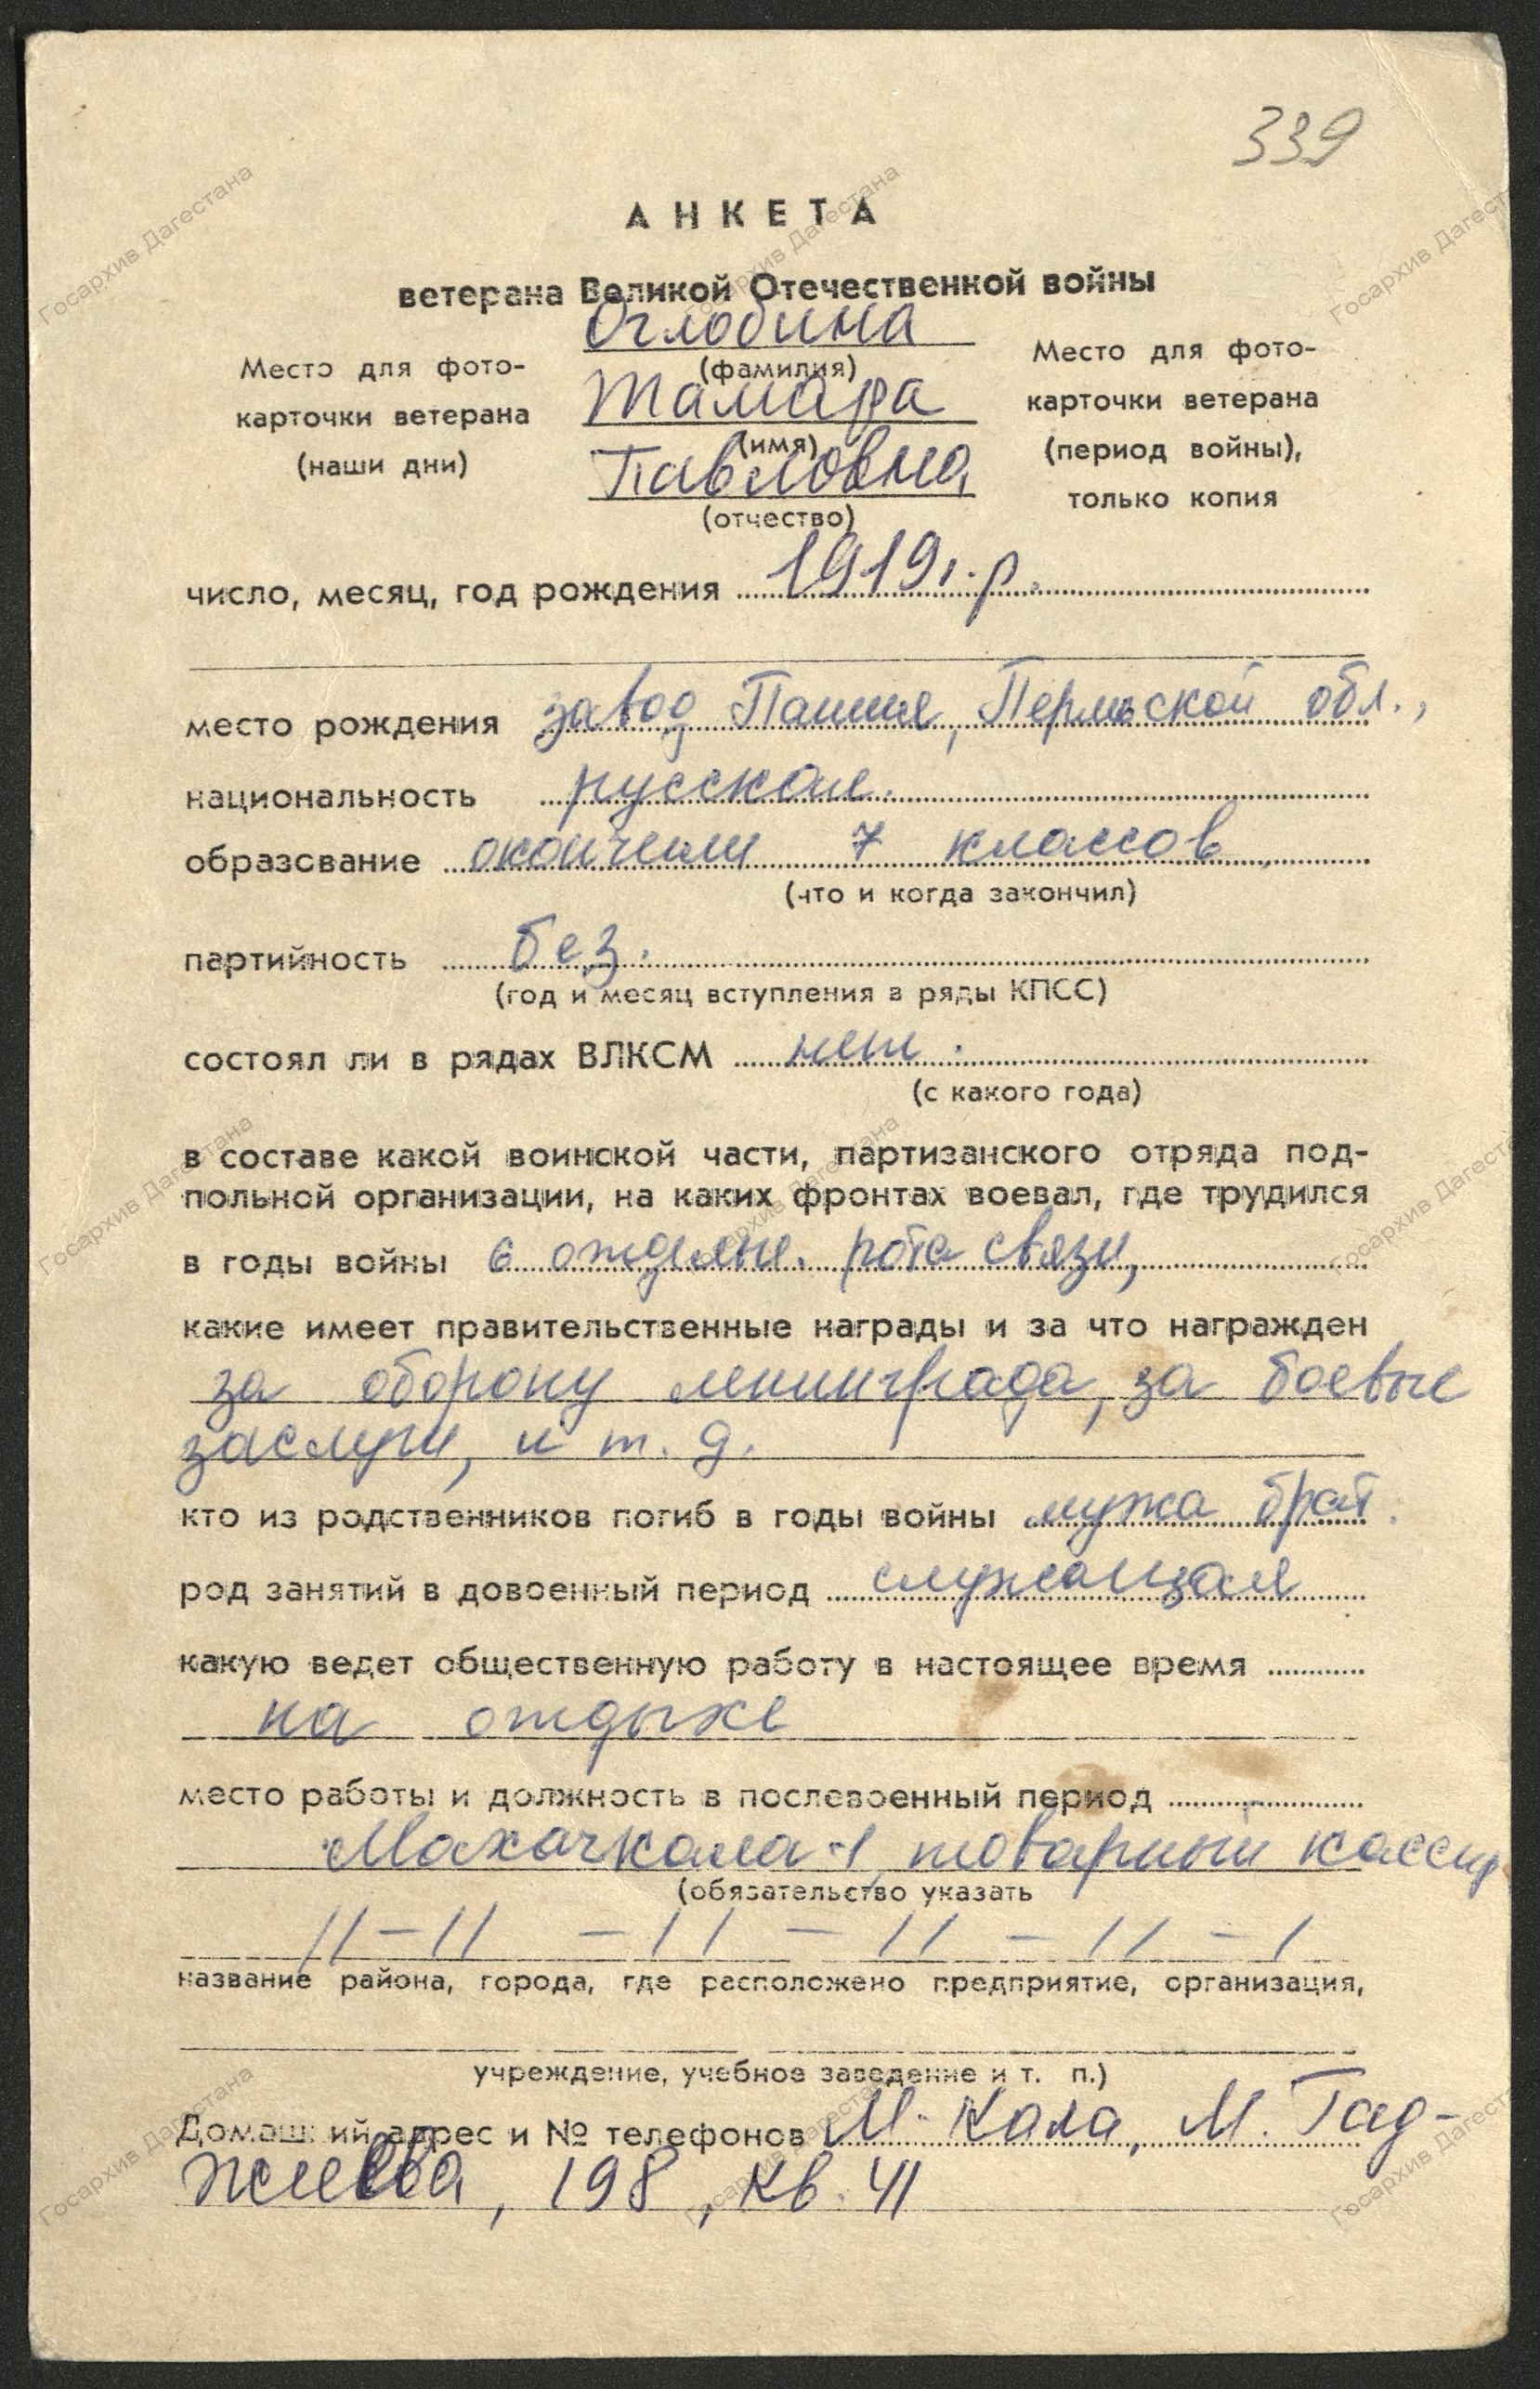 339
АНКЕТА
ветерана Великой Отечественной войны
Оглобина
Место для фото-
(фамилия)
Место для фото-
Тамара
карточки ветерана
карточки ветерана
(имя)
(наши дни)
Павловна
(период войны),
только копия
(отчество)
число, месяц, год рождения 1919г.р.
место рождения завод Пашия, Пермьской обл.,
национальность русская.
образование окончили 7 классов
(что и когда закончил)
партийность без.
(год и месяц вступления в ряды КПСС)
состоял ли в рядах ВЛКСМ нет.
(с какого года)
в составе какой воинской части, партизанского отряда под-
польной организации, на каких фронтах воевал, где трудился
в годы войны 6 отдельн. рота связи,
какие имеет правительственные награды и за что награжден
за оборону ленинграда, за боевые
заслуги, и т. д.
кто из родственников погиб в годы войны мужа брат.
род занятий в довоенный период служащая
какую ведет общественную работу в настоящее время
на отдыхе
место работы и должность в послевоенный период
Махачкала-1, товарный кассир
(обязательство указать
11 – 11 – 11 – 11 – 11 – 1
название района, города, где расположено предприятие, организация,
учреждение, учебное заведение и т. п.)
Домашний адрес и № телефонов М-Кала, М. Гад-
жиева, 198, кв. 41
Госархив Дагестана